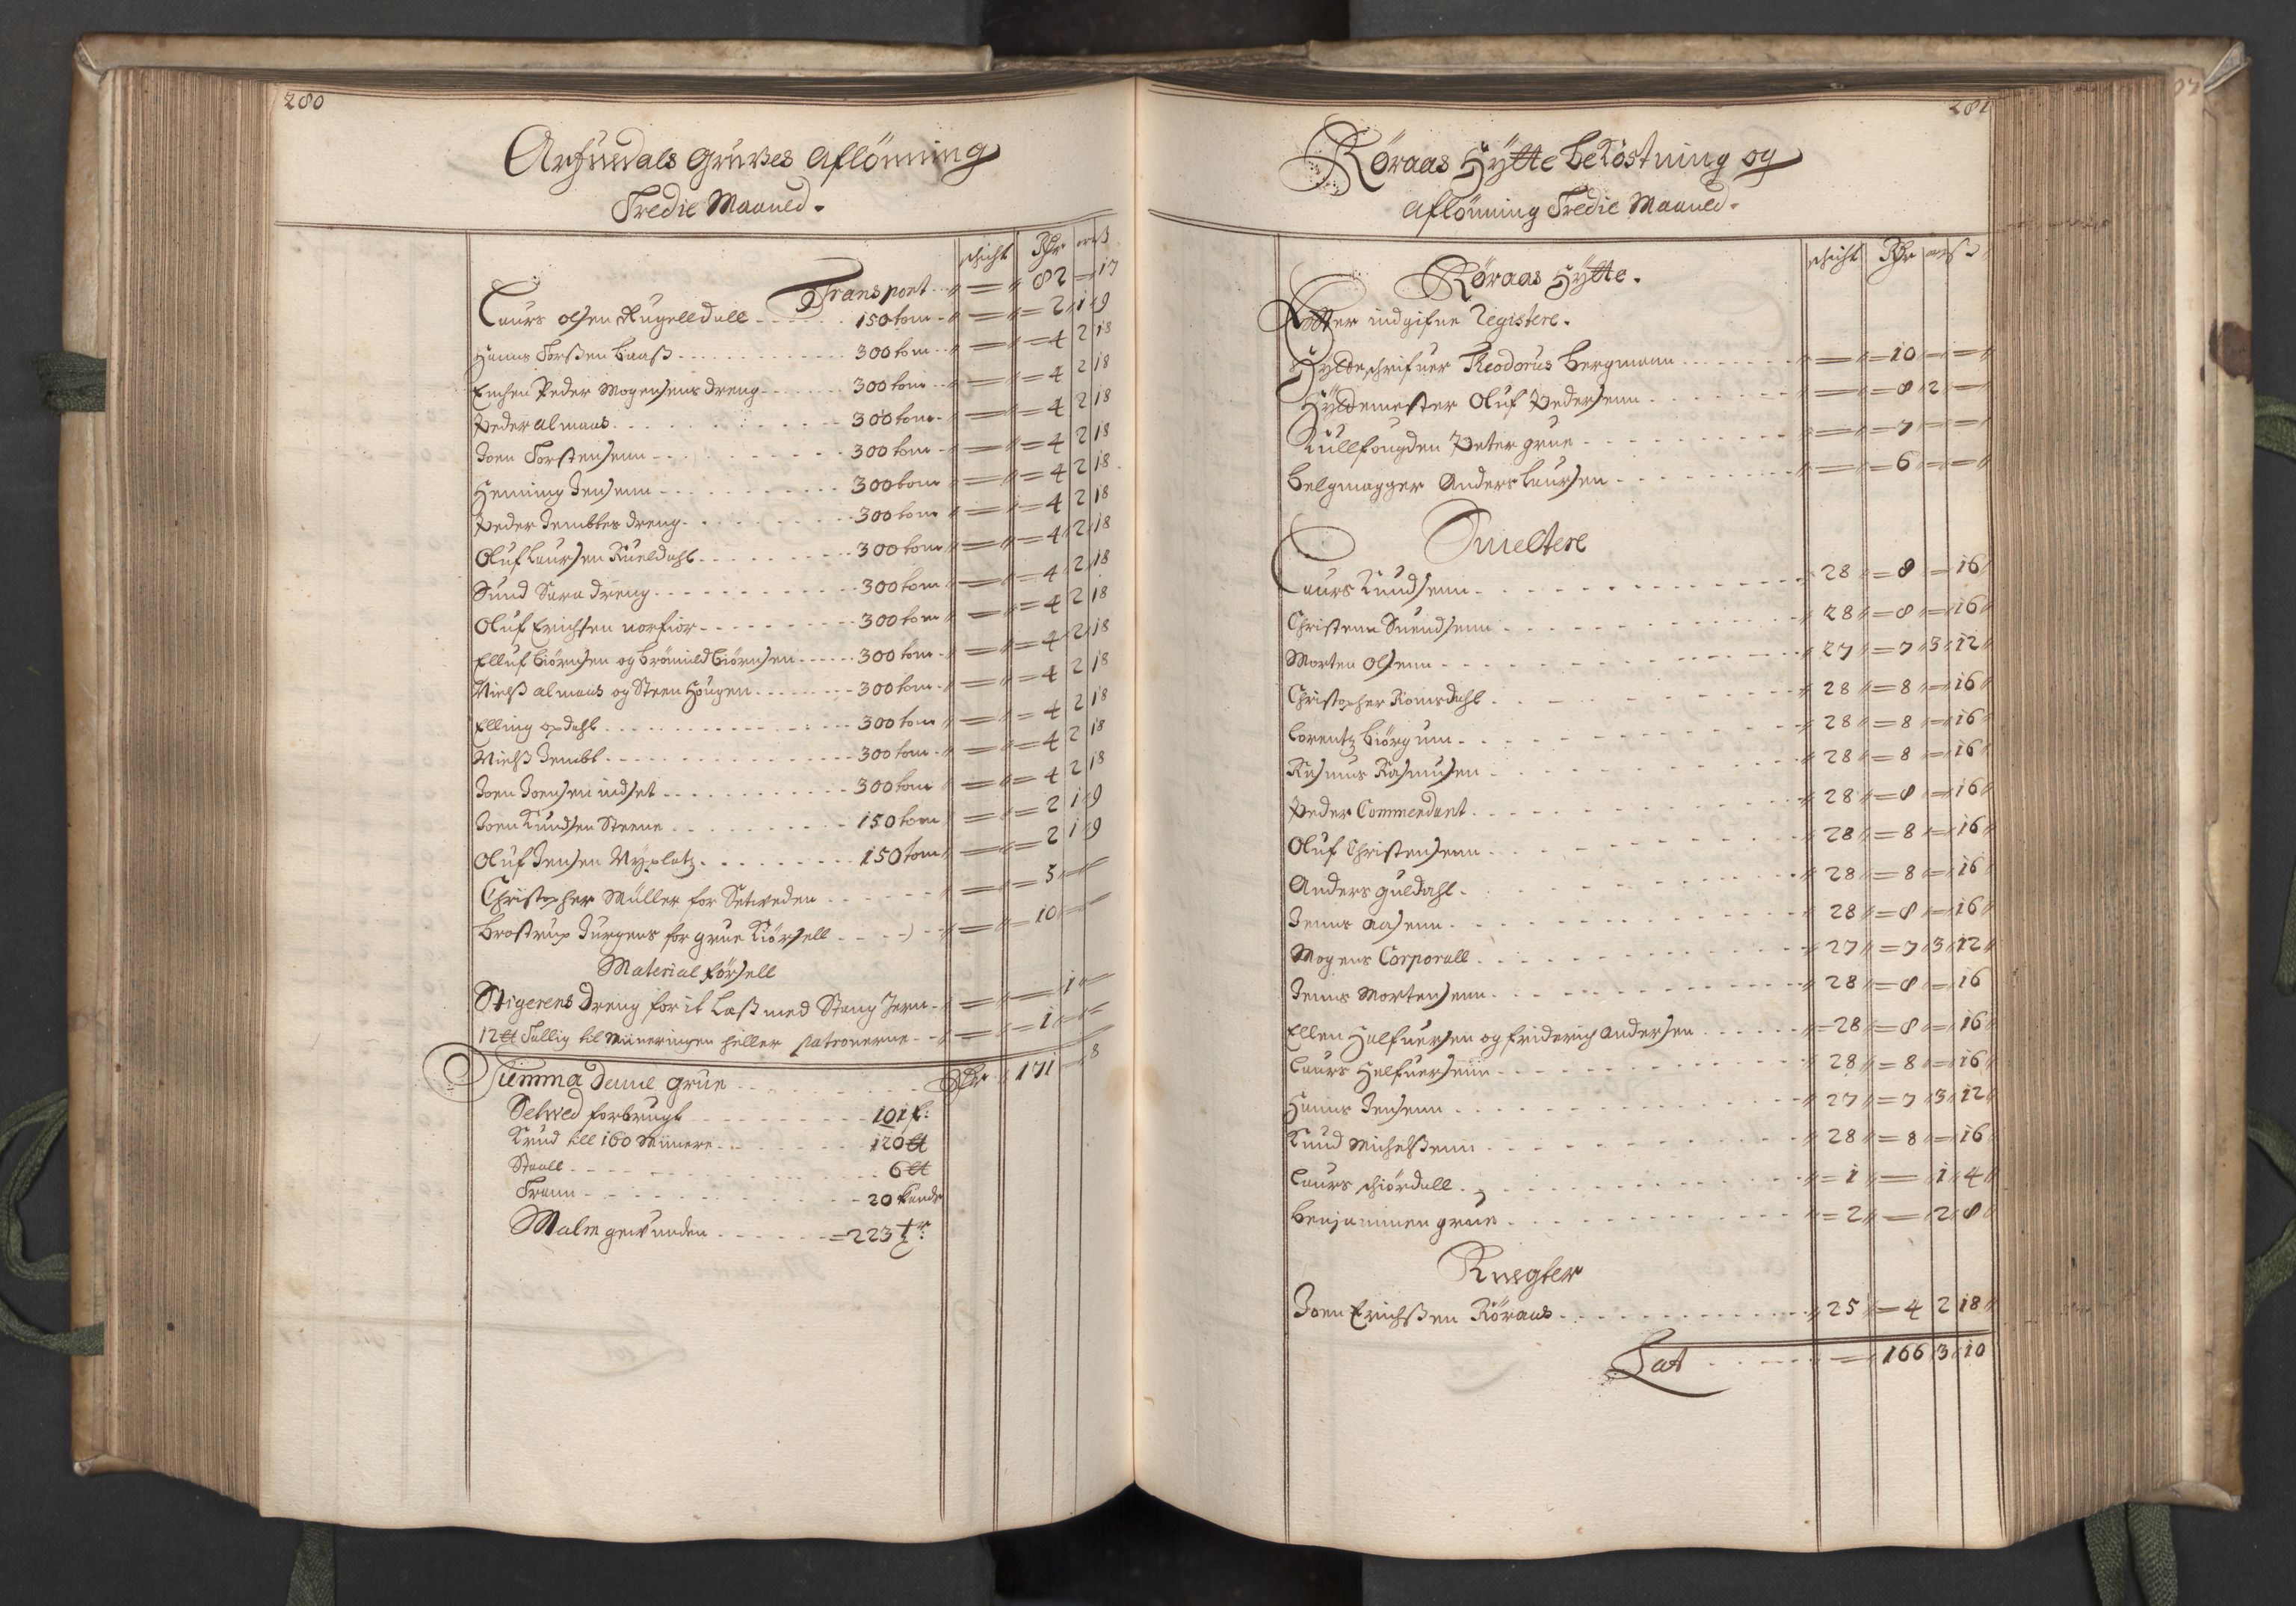 280
Arfuedals Gruves Aflönning
Tredie Maaned.
schicht Rdr ort ß
Transport = 82 = 17
Laurs Olsen Rugelldall 150 tom = 2 1 9
Hanns Torßen Baaß 300 tom = 4 2 18
Enchen Peder Mogensens dreng 300 tom = 4 2 18
Peder Almaas 300 tom = 4 2 18
Joen Torstensenn 300 tom = 4 2 18
Henning Jensenn 300 tom = 4 2 18
Peder Jembtes dreng 300 tom = 4 2 18
Oluf Laursen Rueldahl 300 tom = 4 2 18
Suend Sara dreng 300 tom = 4 2 18
Oluf Erichsen 300 tom = 4 2 18
Elluf Biörnsen og Brömild Biörnsen 300 tom = 4 2 18
Nielß Almaas og Steen Hougen 300 tom = 4 2 18
Elling opdahl 300 tom = 4 2 18
Nielß Jembt 300 tom = 4 2 18
Joen Joensen indset 300 tom = 4 2 18
Joen Knudsen Steene 150 tom = 2 1 9
Oluf Jensen Nyplatz 150 tom = 2 1 9
Christopher Müller for Setweden = 5 =
Brostrup Jürgens for grue Kiörsell = 10 =
Material försell
Stigerens Dreng for it Laß med Stang Jern = 1 =
12 ℔ Tallig til Mineringen heller patronerne = 1 =
Summa Denne grue Rdr 171 = 8
Setwed forbrugt 101 f:
Krud till 160 Minere 120 ℔
Staall 6 ℔
Trann 20 kande
Malm gewunden = 223 tr:
281
Röraas Hytte bekostning og
Aflönning Tredie Maaned.
schicht Rdr ort ß
Röraas Hytte.
Effter indgifne Registere.
Hytteschrifuer Theodorus Bergmann = 10 = =
Hyttemester Oluf Pedersenn = 8 2 =
Kullfougden Peter grue = 7 = =
Belgmagger Anders Laursen = 6 = =
Smeltere
Laurs Knudsenn 28 = 8 = 16
Christenn Suendsenn 28 = 8 = 16
Morten Olsenn 27 = 7 3 12
Christopher Romsdahl 28 = 8 = 16
Lorentz Biörgum 28 = 8 = 16
Rasmus Rasmusen 28 = 8 = 16
Peder Commendant 28 = 8 = 16
Oluf Christensenn 28 = 8 = 16
Anders Guldahl 28 = 8 = 16
Jenns Aasenn 28 = 8 = 16
Mogens Corporall 27 = 7 3 12
Jenns Mortensenn 28 = 8 = 16
Ellen Halfuersen og Friderich Andersen = 28 = 8 = 16
Laurs Halfuersenn 28 = 8 = 16
Hanns Jensenn 27 = 7 3 12
Knud Michelßenn 28 = 8 = 16
Laurs schiördall = 1 = 1 4
Benjammen grue = 2 = 2 8
Knegter
Joen Erichßen Röraas 25 = 4 2 18
Lat = 166 3 10